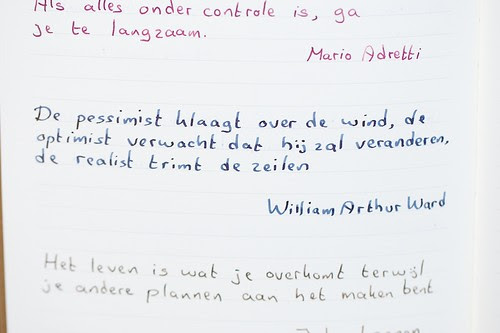 Als alles onder controle is, ga
je te langzaam.
Mario Adretti
De pessimist klaagt over de wind, de
optimist verwacht dat hij zal veranderen,
de realist trimt de zeilen
William Arthur Ward
Het leven is wat je overkomt terwijl
je andere plannen aan het maken bent